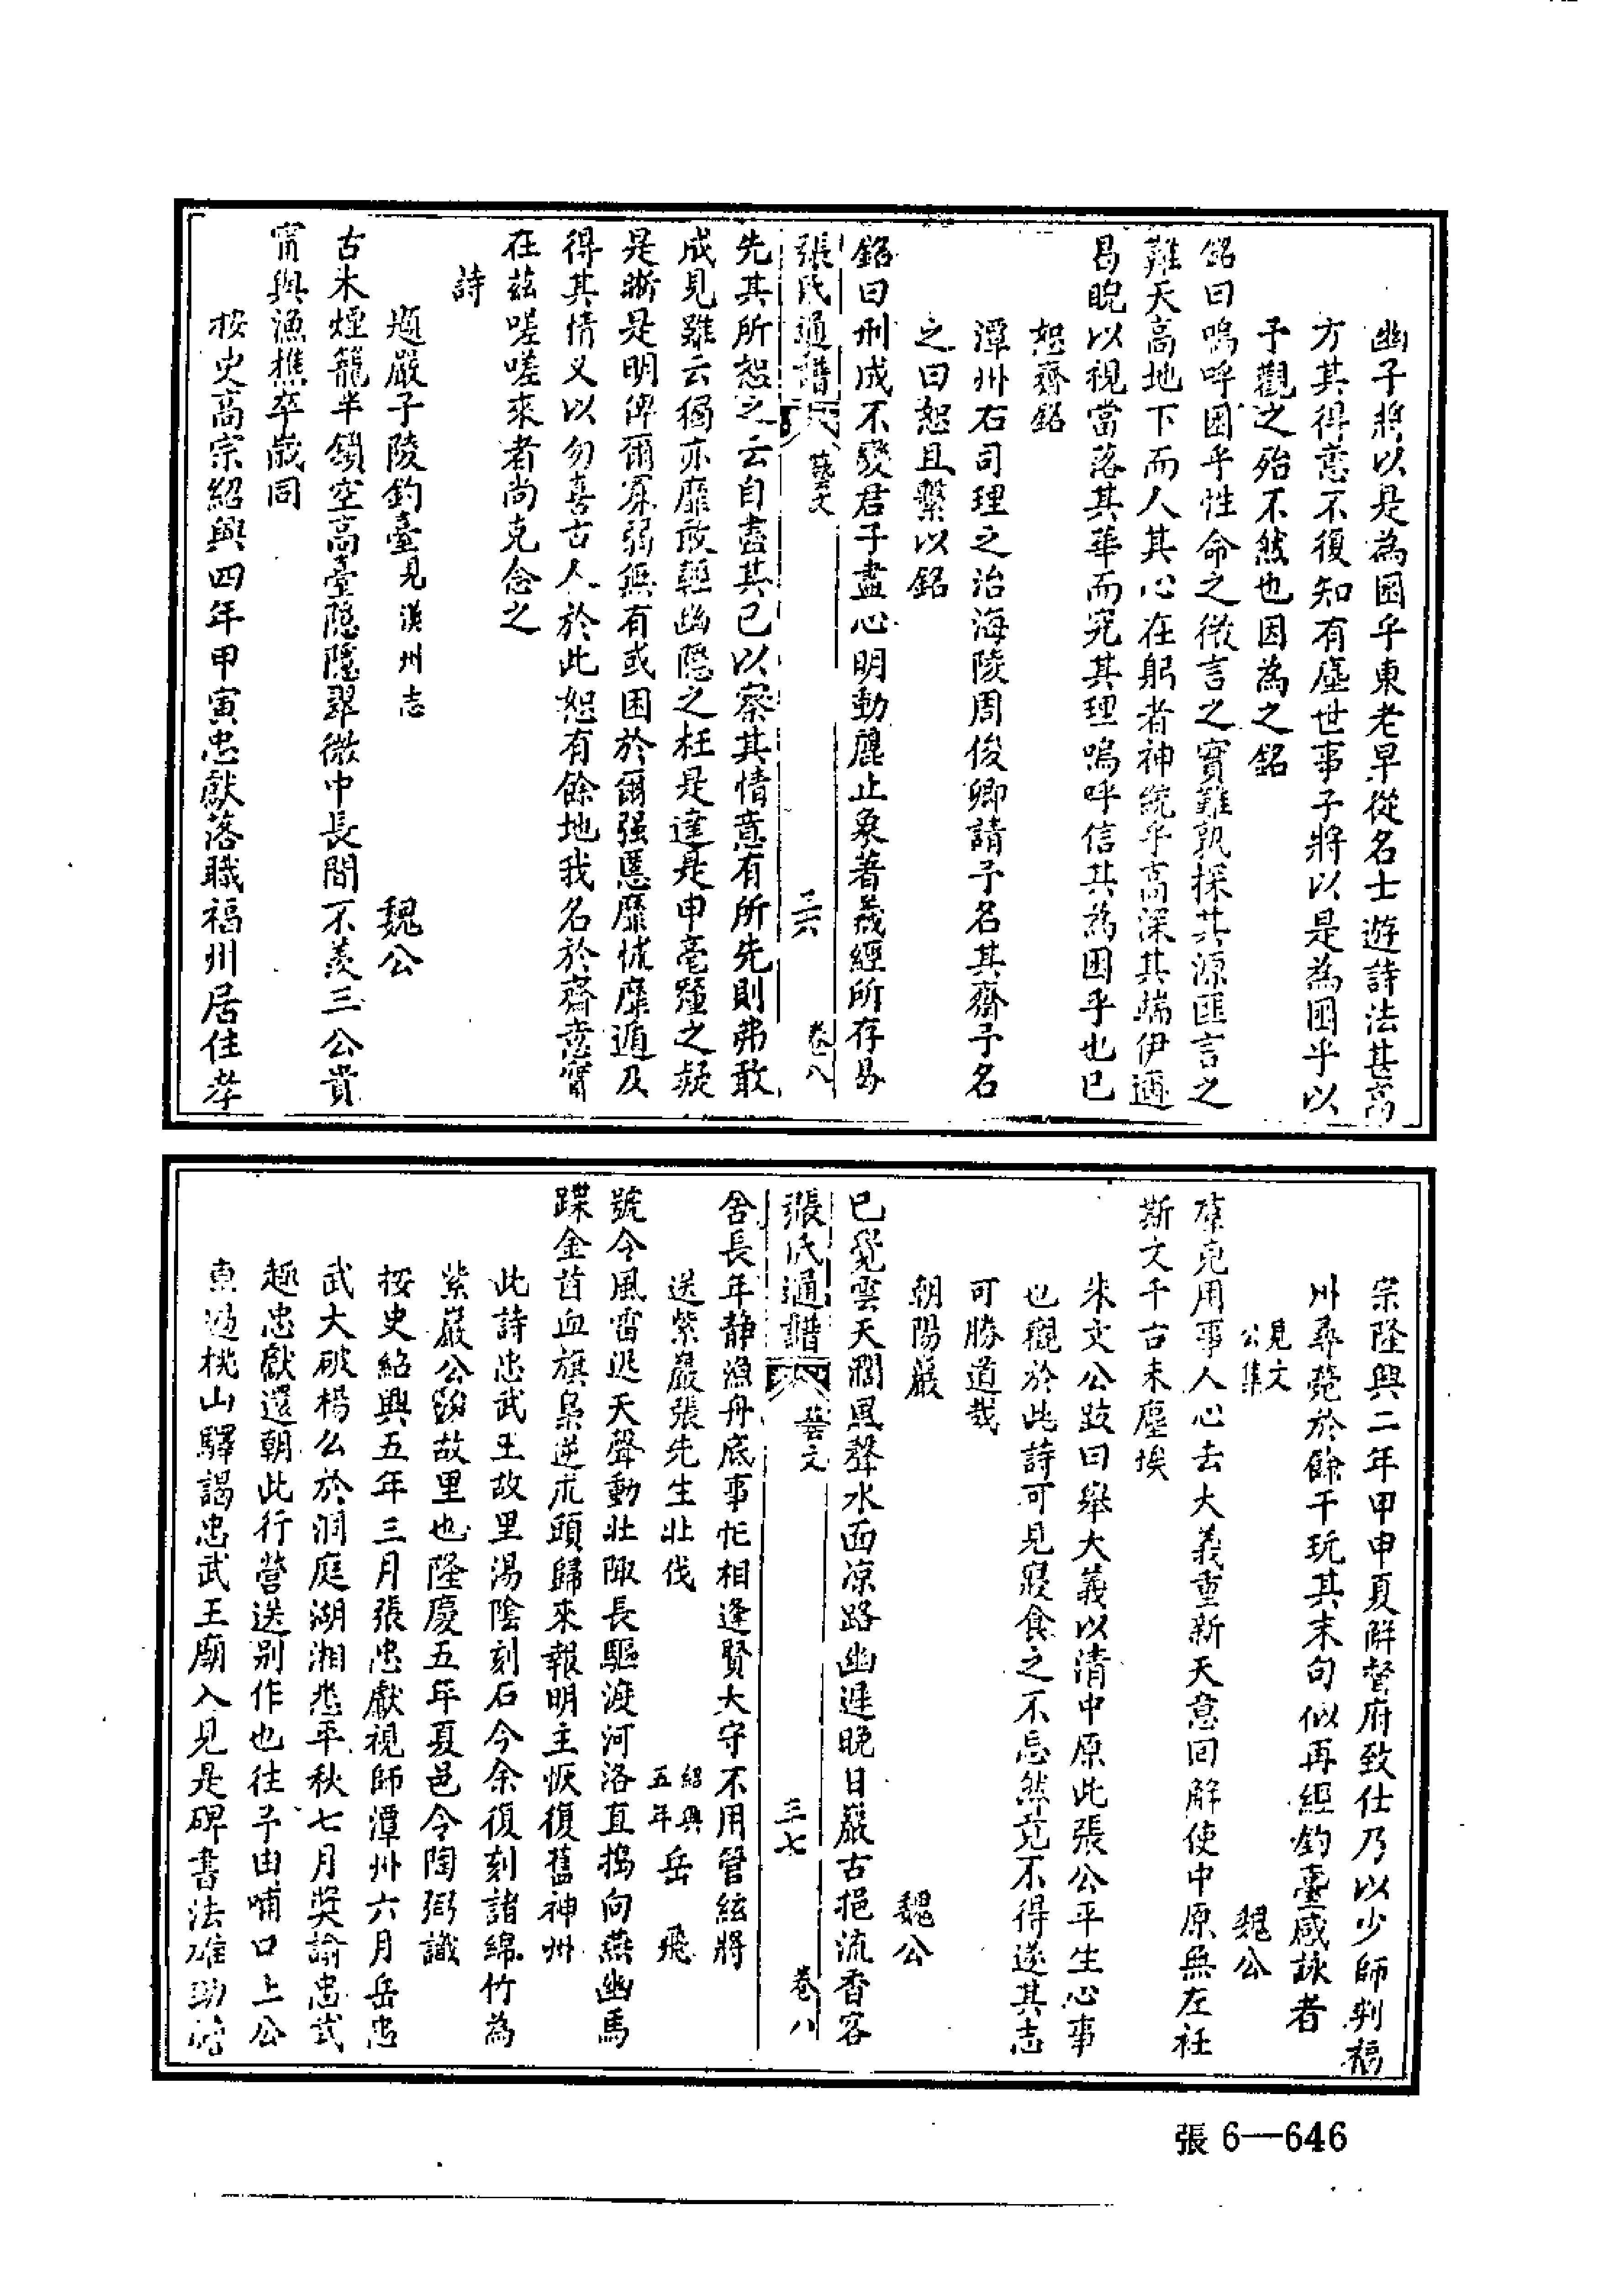 幽子將以是為困乎東老早從名士遊詩法甚高
方其得意不復知有塵世事子將以是為困乎以
予觀之殆不然也因為之銘
銘曰嗚呼困乎性命之微言之實難孰探其源匪言之
難天高地下而人其心在躬者神統乎高深其端伊邇
曷睨以視當落其華而究其理嗚呼信其為困乎也已
恕齋銘
潭州右司理之治海陵周俊卿請予名其齋予名
之曰恕且繫以銘
銘曰刑成不變君子盡心明動麗止象著羲經所存曷
張氏通譜 藝文 三六 卷八
先其所恕之云自盡其己以察其情意有所先則弗敢
成見雖云獨亦靡敢輕幽隱之枉是達是申毫釐之疑
是晰是明俾爾寡弱無有或困於爾强慝靡怵靡遁及
得其情又以勿喜古人於此恕有餘地我名於齋意實
在茲嗟嗟來者尚克念之
詩
題嚴子陵釣臺見漢州志 魏公
古木煙籠半鎖空高臺隱隱翠微中長閒不羨三公貴
甯與漁樵卒歲同
按史高宗紹興四年甲寅忠獻落職福州居住孝
宗隆興二年甲申夏解督府致仕乃以少師判福
州尋薨於餘干玩其末句似再經釣臺感詠者
見文公集 魏公
羣兇用事人心去大義重新天意回解使中原無左衽
斯文千古未塵埃
朱文公跋曰舉大義以清中原此張公平生心事
也觀於此詩可見寢食之不忘然竟不得遂其志
可勝道哉
朝陽巖 魏公
已覺雲天濶風聲水面凉路幽遲晚日巖古挹流香客
張氏通譜 藝文 三七 卷八
舍長年静漁舟底事忙相逢賢大守不用管絃將
送紫巖張先生北伐 紹興五年 岳飛
號令風雷迅天聲動北陬長驅渡河洛直搗向燕幽馬
蹀金首血旗梟逆朮頭歸來報明主恢復舊神州
此詩忠武王故里湯陰刻石今余復刻諸綿竹為
紫巖公故里也隆慶五年夏邑令陶弼識
按史紹興五年三月張忠獻視師潭州六月岳忠
武大破楊么於洞庭湖湘悉平秋七月奬諭忠武
趣忠獻還朝此行營送别作也往予由哺口上公
車過桃山驛謁忠武王廟入見是碑書法雄勁
張 6—646